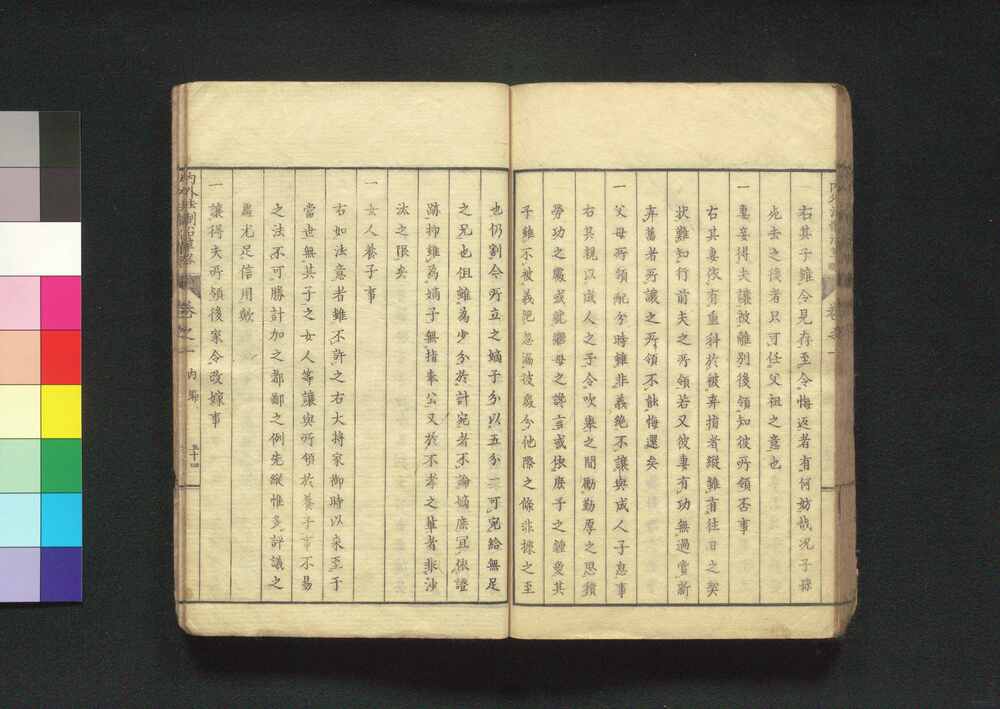 右其子雖令見存至令悔返者有何妨哉况子孫
死去之後者只可任父祖之意也
一
妻妾得夫讓被離別後領知彼所領否事
右其妻依有重科於被弃捐者縱雖有往日之契
状難知行前夫之所領若又彼妻有功無過賞新
弃舊者所讓之所領不能悔還矣
一
父母所領配分時雖非義絶不讓與成人子息事
右其親以成人之子令吹擧之間勵勤厚之思積
勞功之處或就繼母之讒言或依庶子之鍾愛其
子雖不被義絶忽漏彼處分侘傺之條非據之至
也仍割今所立之嫡子分以五分一可宛給無足
之兄也但雖為少分於計宛者不論嫡庶冝依證
跡抑雖為嫡子無指奉公又於不孝之輩者非沙
汰之限矣
一
女人養子事
右如法意者雖不許之右大将家御時以来至于
當世無其子之女人等讓與所領於養子事不易
之法不可勝計加之都鄙之例先縱惟多評議之
處尤足信用歟
一
讓得夫所領後家令改嫁事
卷之一
内編
五十四